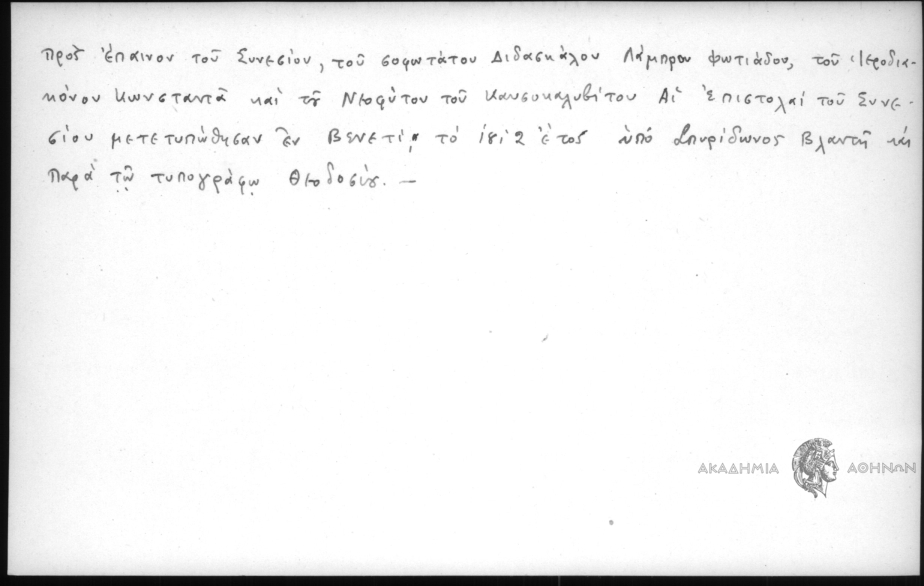 πρὸς ἔπαινον τοῦ Συνεσίου, τοῦ σοφωτάτου Διδασκάλου Λάμπρου Φωτιάδου, τοῦ Ἱεροδια-
κόνου Κωνσταντᾶ καὶ τοῦ Νεοφύτου τοῦ Καυσοκαλυβίτου Αἱ Ἐπιστολαί τοῦ Συνε-
σίου μετετυπώθησαν ἐν Βενετίᾳ τό 1812 ἔτος ὑπό Σπυρίδωνος Βλαντῆ καὶ
παρὰ τῷ τυπογράφῳ Θεοδοσίῳ. —
ΑΚΑΔΗΜΙΑ ΑΘΗΝΩΝ